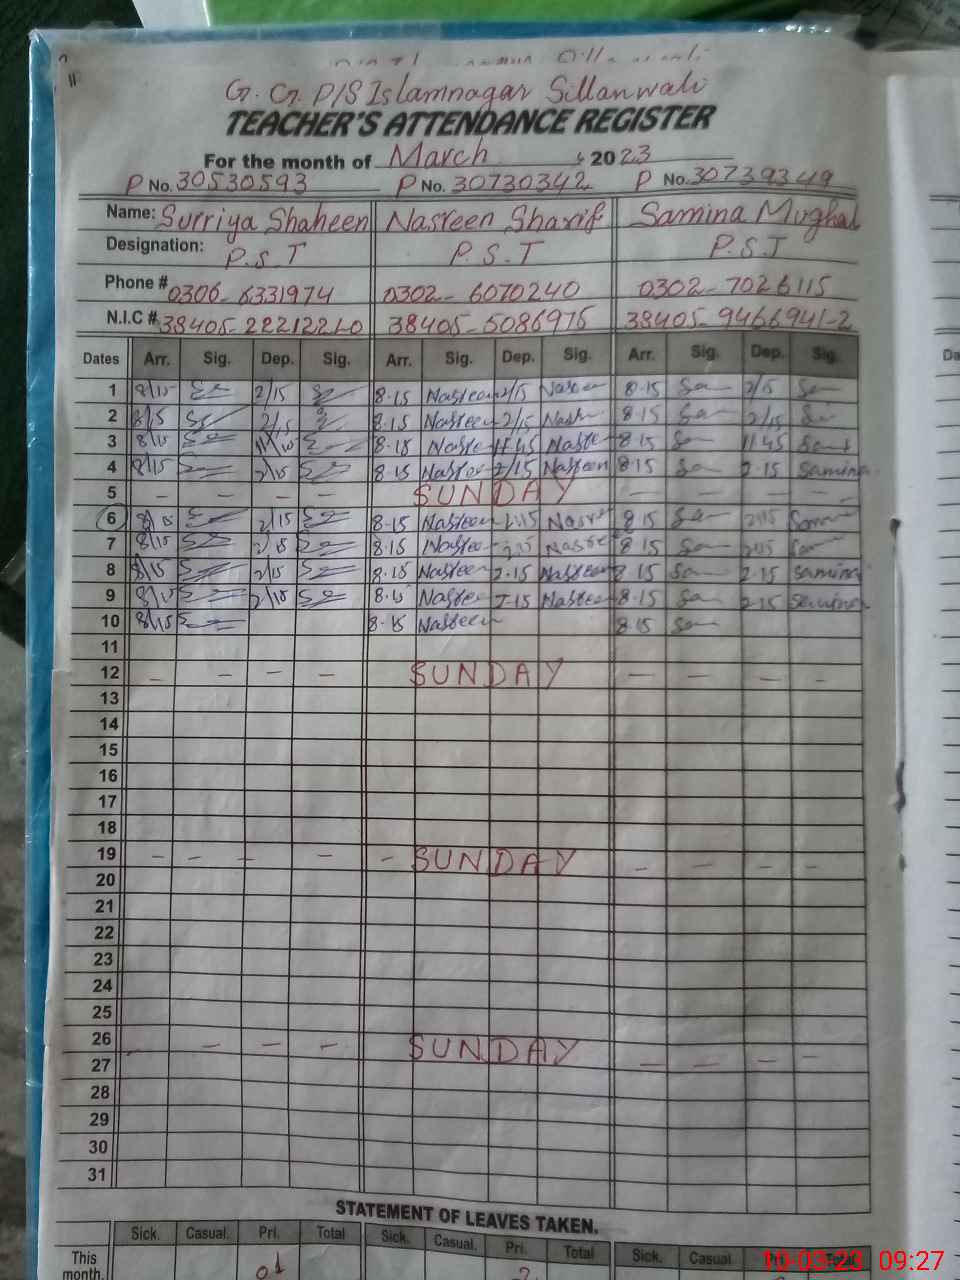 G. G. P/S Islamnagar Sillanwali
TEACHER'S ATTENDANCE REGISTER
For the month of March 2023
P No. 30530593 P No. 30730342 P No. 30739349
Name: Surriya Shaheen Nasreen Sharif Samina Mughal
Designation: P.S.T P.S.T P.S.T
Phone # 0306-6331974 0302-6070240 0302-7026115
N.I.C # 38405-2221221-0 38405-5086975 38405-9466941-2
Dates Arr. Sig. Dep. Sig. Arr. Sig. Dep. Sig. Arr. Sig. Dep. Sig.
1 8/15 2/15 8.15 Nasreen 2/15 Nasreen 8.15 Sa 2/15 Sa
2 8/15 2/15 8.15 Nasreen 2/15 Nasr 8.15 Sa 2/15 Sa
3 8/15 11/15 8.15 Nasreen 11.45 Nasreen 8.15 Sa 11.45 Sam
4 8/15 2/15 8.15 Nasreen 2/15 Nasreen 8.15 Sa 2.15 Samina
5 - - - - SUNDAY - - - -
6 8/15 2/15 8.15 Nasreen 2.15 Nasre 8.15 Sa 2.15 Sam
7 8/15 2/15 8.15 Nasreen 2.15 Nasre 8.15 Sa 2.15 Sam
8 8/15 2/15 8.15 Nasreen 2.15 Nasreen 8.15 Sa 2.15 Samina
9 8/15 2/15 8.15 Nasreen 2.15 Nasreen 8.15 Sa 2.15 Samina
10 8/15 8.15 Nasreen 8.15 Sa
11
12 - - - - SUNDAY - - - -
13
14
15
16
17
18
19 - - - - - SUNDAY - - - -
20
21
22
23
24
25
26 - - - - SUNDAY - - - -
27
28
29
30
31
STATEMENT OF LEAVES TAKEN.
Sick. Casual. Pri. Total Sick. Casual. Pri. Total Sick. Casual. Pri. Total
This month. 01 2
10-03-23 09:27